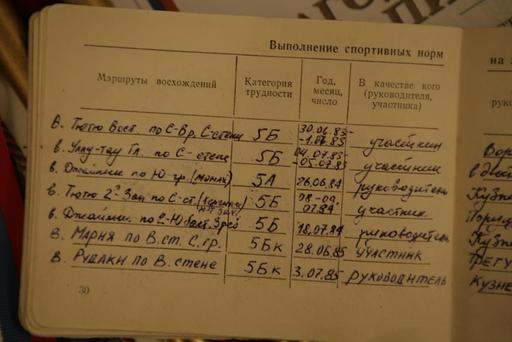 Выполнение спортивных норм
Маршруты восхождений
Категория трудности
Год, месяц, число
В качестве кого (руководителя, участника)
В. Тютю Вост. по С-Вр. С-стены 5Б 30.06.85- -1.07.85 участник
в. Уллу-тау Гл. по С-стене 5Б 04.07.85- -05.07.85 участник
в. Джайлик по Ю гр. 5А 26.06.84 руководитель
в. Тютю 2ª Зап по С-ст. 5Б 08-09. 07.84 участник
в. Джайлик по 5Б 18.07.84 руководитель
В. Мария по В.ст. С.гр. 5Бк 28.06.85 участник
В. Рудаки по В. стене 5Бк 3.07.85 руководитель
30
на
Кузне